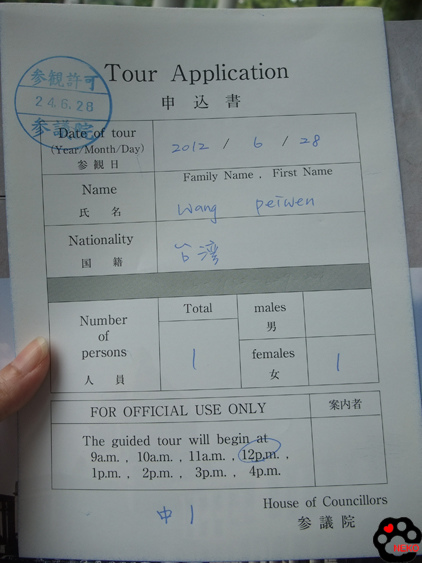 参観許可
24.6.28
参議院
Tour Application
申込書
Date of tour
(Year/Month/Day)
参観日
2012 / 6 / 28
Name
氏名
Family Name , First Name
Wang peiwen
Nationality
国籍
台灣
Number
of
persons
人員
Total
1
males
男
females
女
1
FOR OFFICIAL USE ONLY
案内者
The guided tour will begin at
9a.m. , 10a.m. , 11a.m. , 12p.m. ,
1p.m. , 2p.m. , 3p.m. , 4p.m.
中1
House of Councillors
参議院